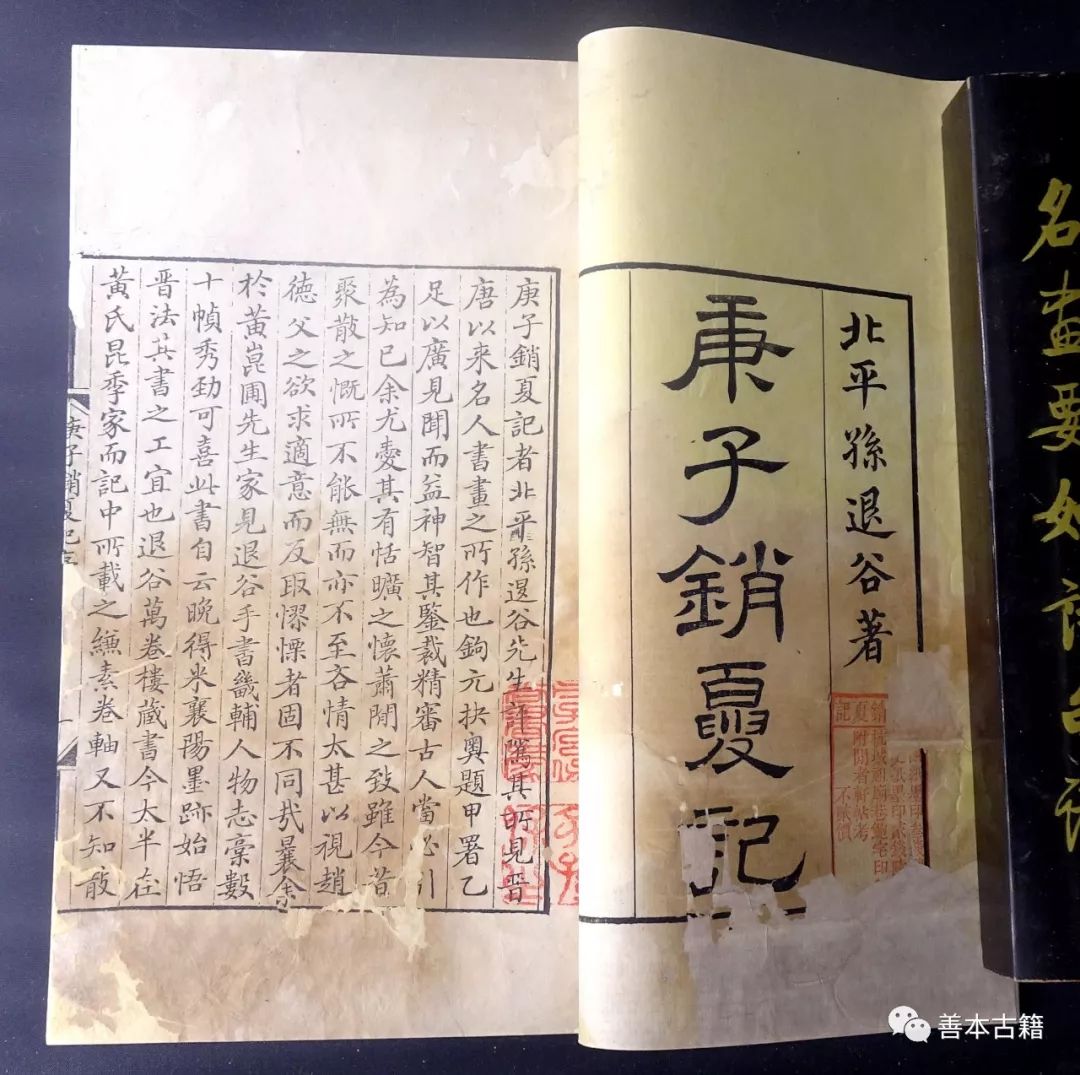 北平孫退谷著
庚子銷夏記
銷夏記
附閒者軒帖考
庚子銷夏記者北平孫退谷先生評騭其所見晉
唐以來名人書畫之所作也鉤元抉奧題甲署乙
足以廣見聞而益神智其鑒裁精審古人當必引
為知己余尤愛其有恬曠之懷蕭閒之致雖今昔
聚散之慨所不能無而亦不至吝情太甚以視趙
德父之欲求適意而反取憀慄者固不同哉曩余
於黃崑圃先生家見退谷手書畿輔人物志稾數
十幀秀勁可喜此書自云晚得米襄陽墨跡始悟
晉法其書之工宜也退谷萬卷樓藏書今太半在
黃氏昆季家而記中所載之縑素卷軸又不知散
庚子銷夏記
善本古籍